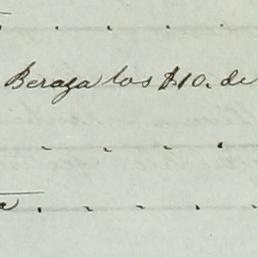 Beraza los $10. de
a